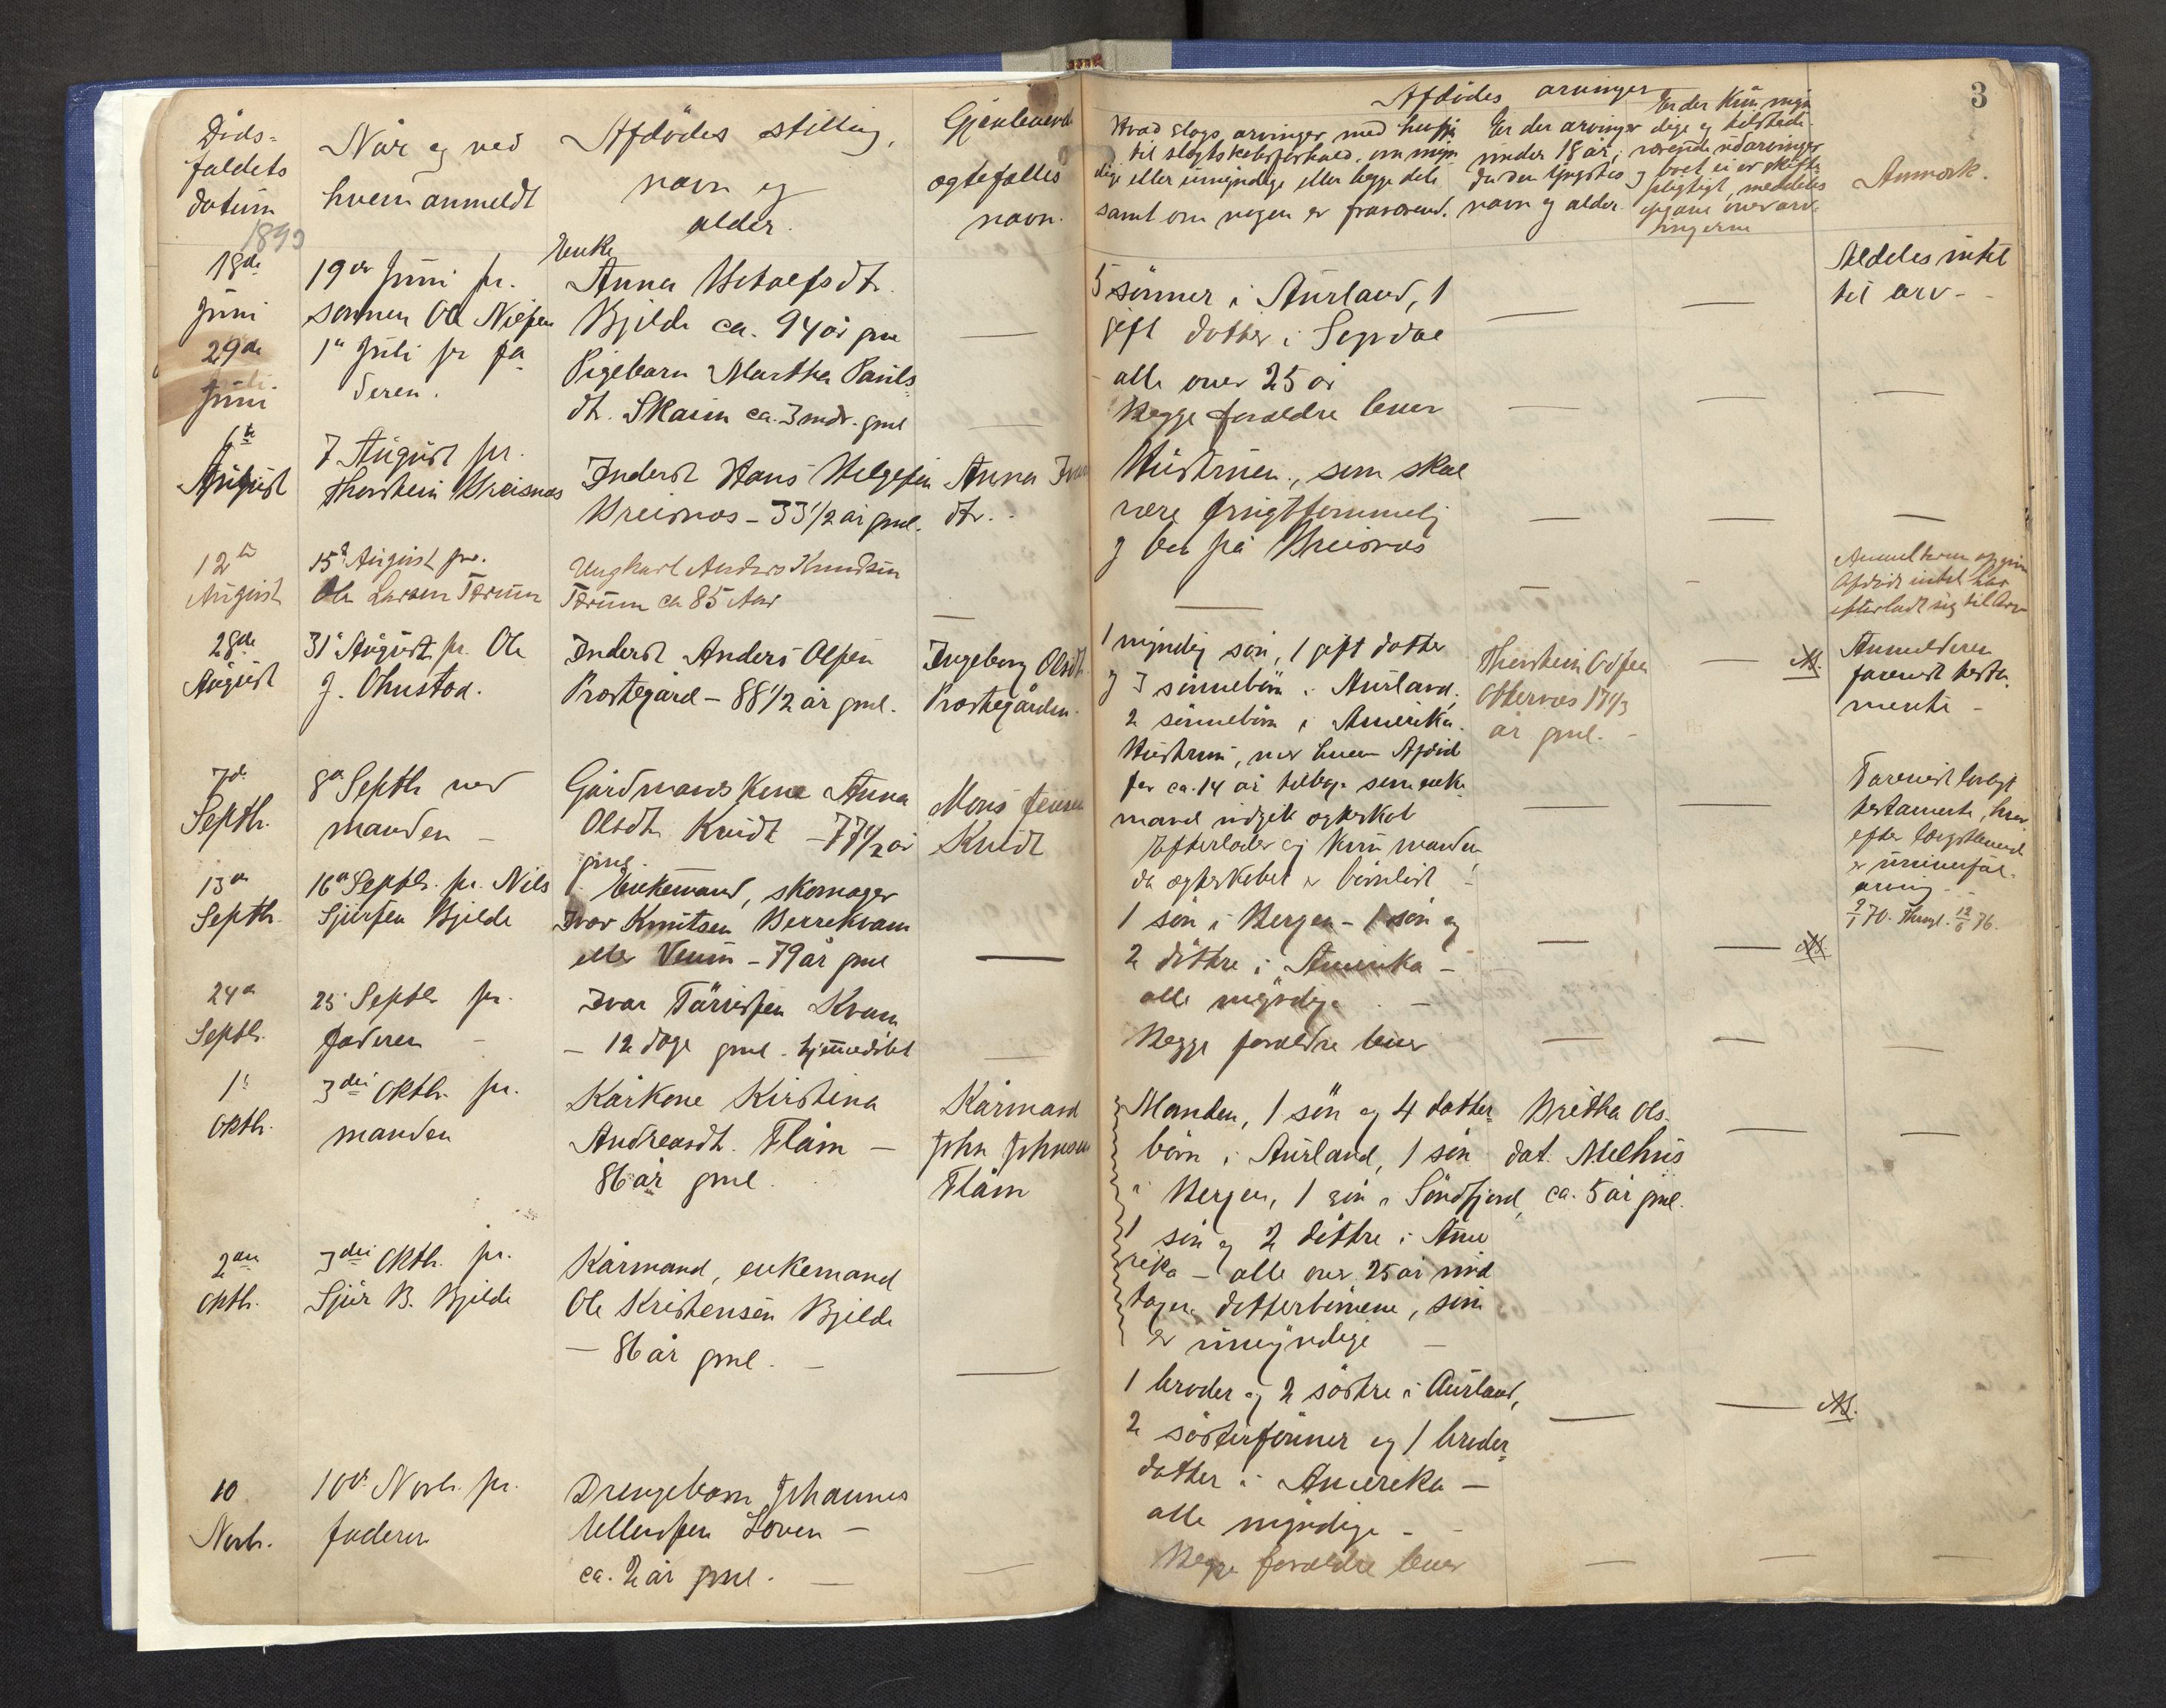 Døds-
faldets
datum
1893
Når og ved
hvem anmeldt
Afdødes stilling,
navn og
alder.
Gjenlevende
ægtefælles
navn.
Afdødes arvinger
3
Hvad slags arvinger, med hensyn
til slægtskabsforhold, om myn
dige eller umyndige eller begge dele
samt om nogen er fraværend.
Er der arvinger
under 18 år,
da den yngstes
navn og alder.
Er der kun myn
dige og tilstede
værende udarvinger
og boet ei er skifte
pligtigt, meddeles
opgave over arv-
ingerne
Anmærk.
18de
Juni
19de Juni pr.
sønnen Ole Nielsen
Enke
Anna Botolfsdt.
Bjelde ca. 94 år gml
5 sønner i Aurland, 1
gift datter i Sogndal
alle over 25 år
Aldeles intet
til arv -
29de
Juni
1ste Juli pr fa
deren.
Pigebarn Martha Pauls
dt. Skaim ca. 3 mdr. gml
Begge forældre lever
6te
August
7 August pr.
Thorstein Breisnæs
Inderst Hans Helgesen
Breisnæs - 33 1/2 år gml.
Anna Ivars
dtr.
Hustruen, som skal
være frugtsommelig
og bor på Breisnæs
12te
August
15de August pr.
Ole Larsen Tærum
Ungkarl Anders Knudsen
Tærum ca 85 Aar
Anmelderen opgiver
Afdøde intet har
efterladt sig til Arv
28de
August
31te August pr. Ole
J. Ohnstad.
Inderst Anders Olsen
Prestegård - 88 1/2 år gml.
Ingeborg Olsdt.
Prestegården.
1 myndig søn, 1 gift datter
og 3 sønnebørn i Aurland,
2 sønnebørn i Amerika.
Hustrun, med hvem Afdøde
for ca. 14 år tilbage som enke
mand indgik ægteskab
Thorstein Odsen
Otternæs 17 1/3
år gml.
Anmelderen
forevist testa
mente -
7de
Septbr.
8de Septbr ved
manden -
Gårdmandskone Anna
Olsdtr. Kvidt - 77 1/2 år
gml.
Mons Jensen
Kvidt
Efterlader sig kun manden
da ægteskabet er barnløst
Forevist lovligt
testamente, hvor
efter længstlevende
er universal-
arving -
13de
Septbr.
16de Septbr. pr. Nils
Sjursen Bjelde
Enkemand, skomager
Ivar Knutsen Berrekvam
eller Venum - 79 år gml
1 søn i Bergen - 1 søn og
2 døttre i Amerika -
alle myndige -
24de
Septbr.
25 Septbr pr.
faderen -
Ivar Tørrissen Kvam
- 12 dage gml. hjemmedøbt
Begge forældre lever
1ste
Oktbr.
3die Oktbr. pr.
manden
Kårkone Kirstina
Andreasdt. Flåm -
86 år gml.
Kårmand
John Johnsen
Flåm
Manden, 1 søn og 4 datter-
børn i Aurland, 1 søn
i Bergen, 1 søn i Søndfjord,
1 søn og 2 døttre i Ame
rika - alle over 25 år und
tagen datterbørnene, som
er umyndige -
Britha Ols-
dat. Melhus
ca. 5 år gml.
2den
Oktbr.
3die Oktbr. pr.
Sjur B. Bjelde
Kårmand, enkemand
Ole Kristensen Bjelde
- 86 år gml. -
1 broder og 2 søstre i Aurland,
2 søstersønner og 1 broder-
datter i Amerika -
alle myndige -
10
Novbr.
10de Novbr. pr.
faderen
Drengebarn Johannes
Ellendsen Loven -
ca. 2 år gml. -
Begge forældre lever